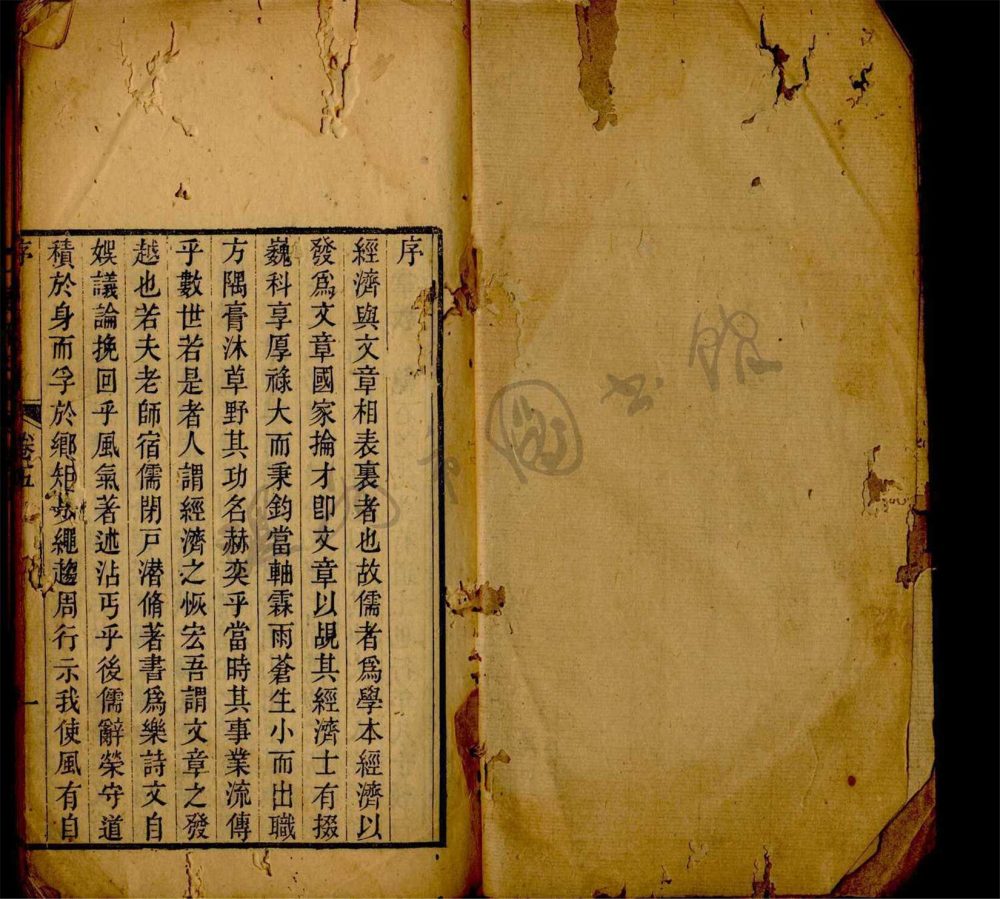 序
經濟與文章相表裏者也故儒者爲學本經濟以
發爲文章國家掄才即文章以覘其經濟士有掇
巍科享厚祿大而秉鈞當軸霖雨蒼生小而出職
方隅膏沐草野其功名赫奕乎當時其事業流傳
乎數世若是者人謂經濟之恢宏吾謂文章之發
越也若夫老師宿儒閉戸潜脩著書爲樂詩文自
娛議論挽回乎風氣著述沾丐乎後儒辭榮守道
積於身而孚於鄉矩步繩趨周行示我使風有自
序
卷 五
一
市圖书馆